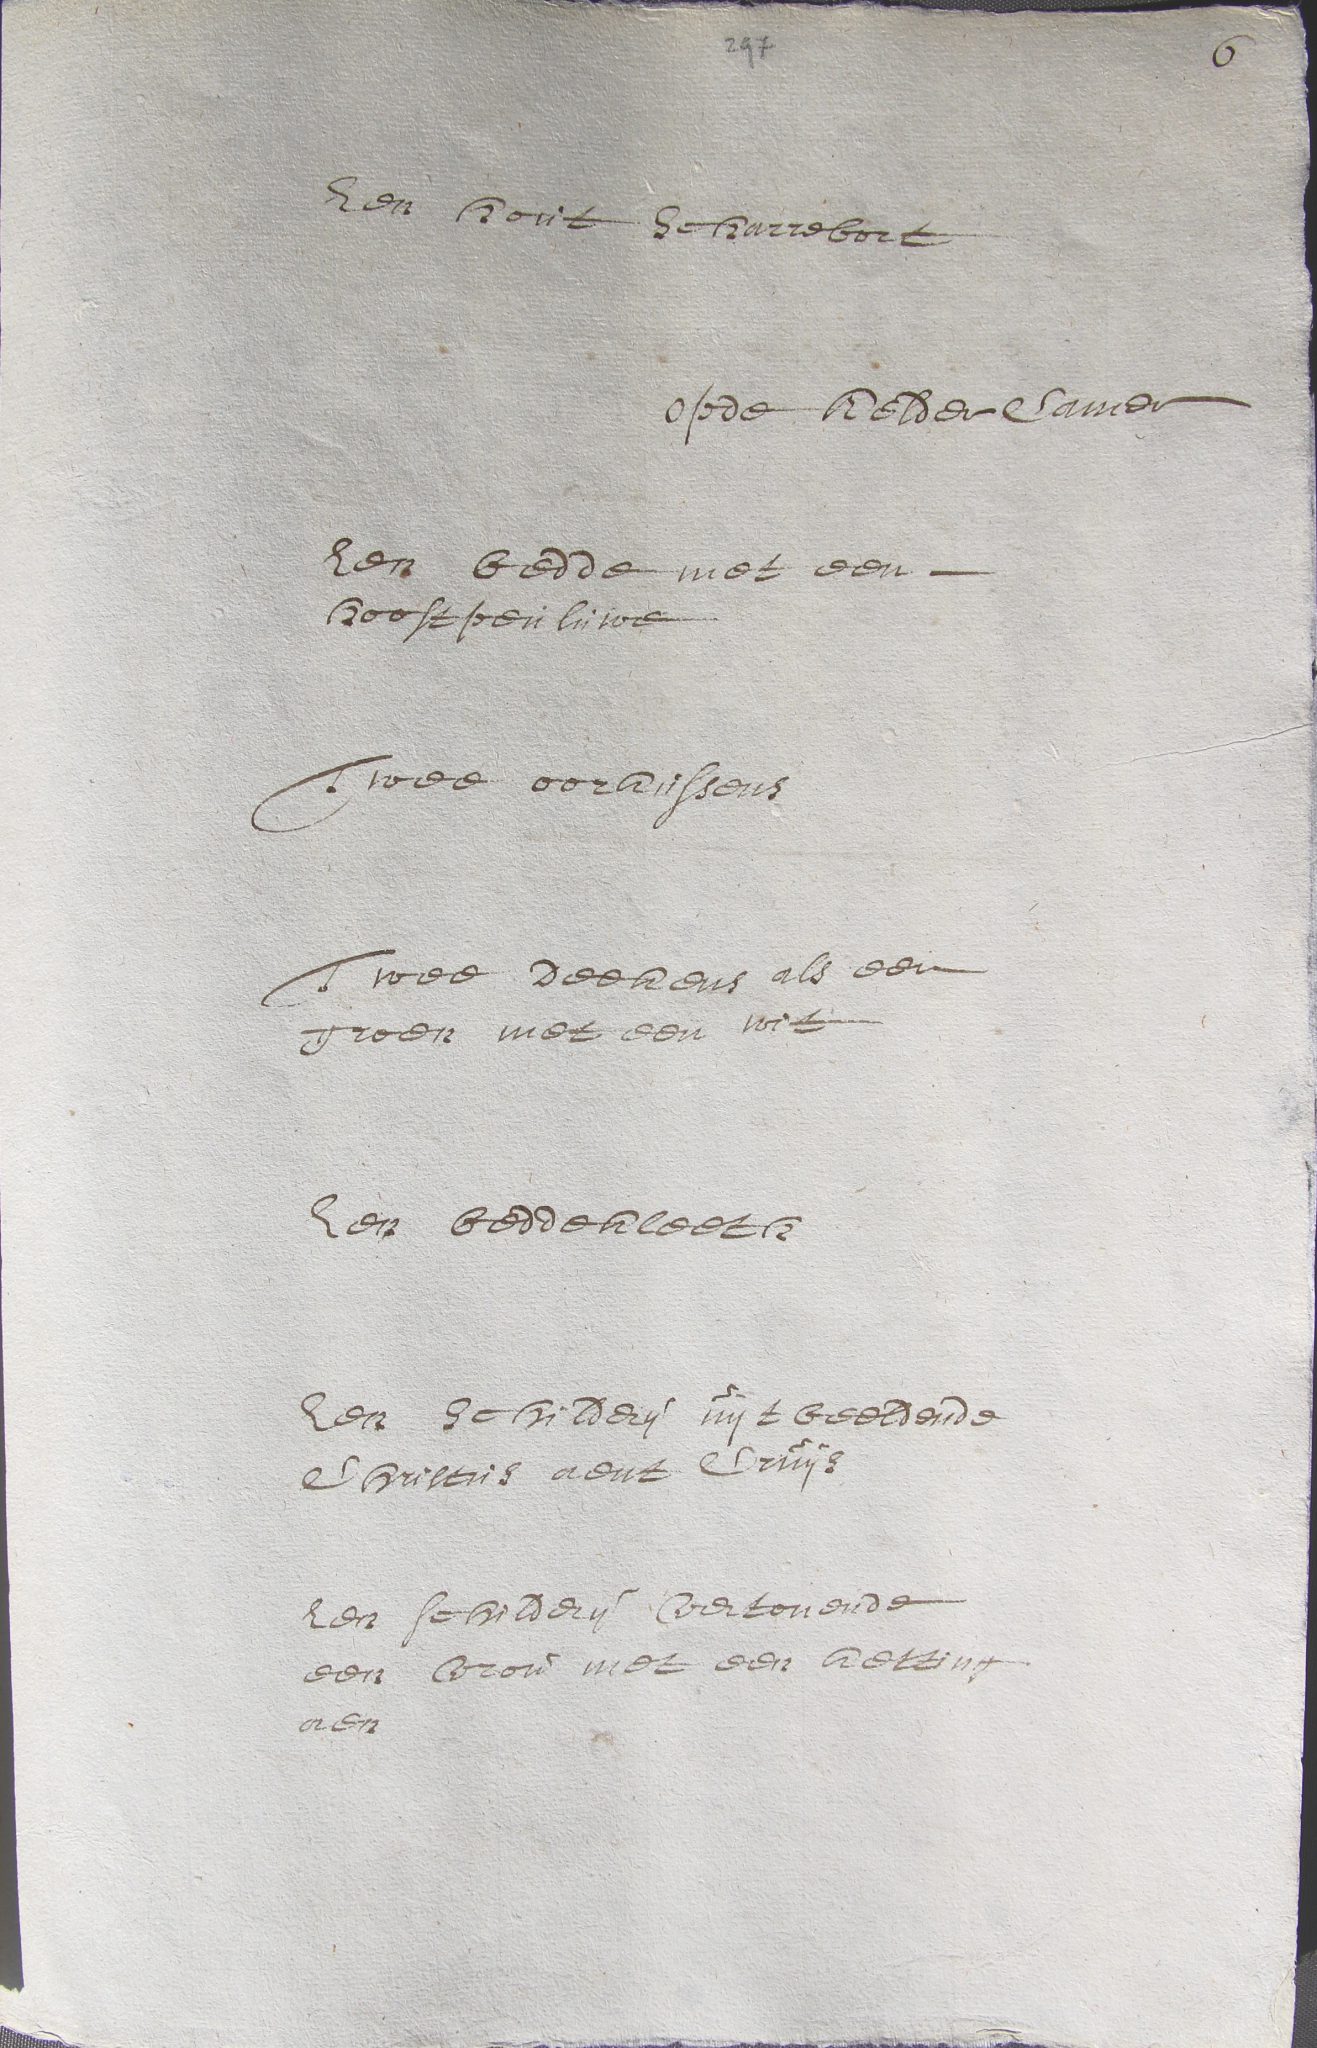 297
6
Een hout scharrebort
opde kelder Camer
Een bedde met een
hooftpeuluwe
Twee oorkussens
Twee deekens als een
groen met een wit
Een beddekleeth
Een schilderij uijtbeeldende
Christus aent Cruijs
Een schilderij vertonende
een vrou met een ketting
aen